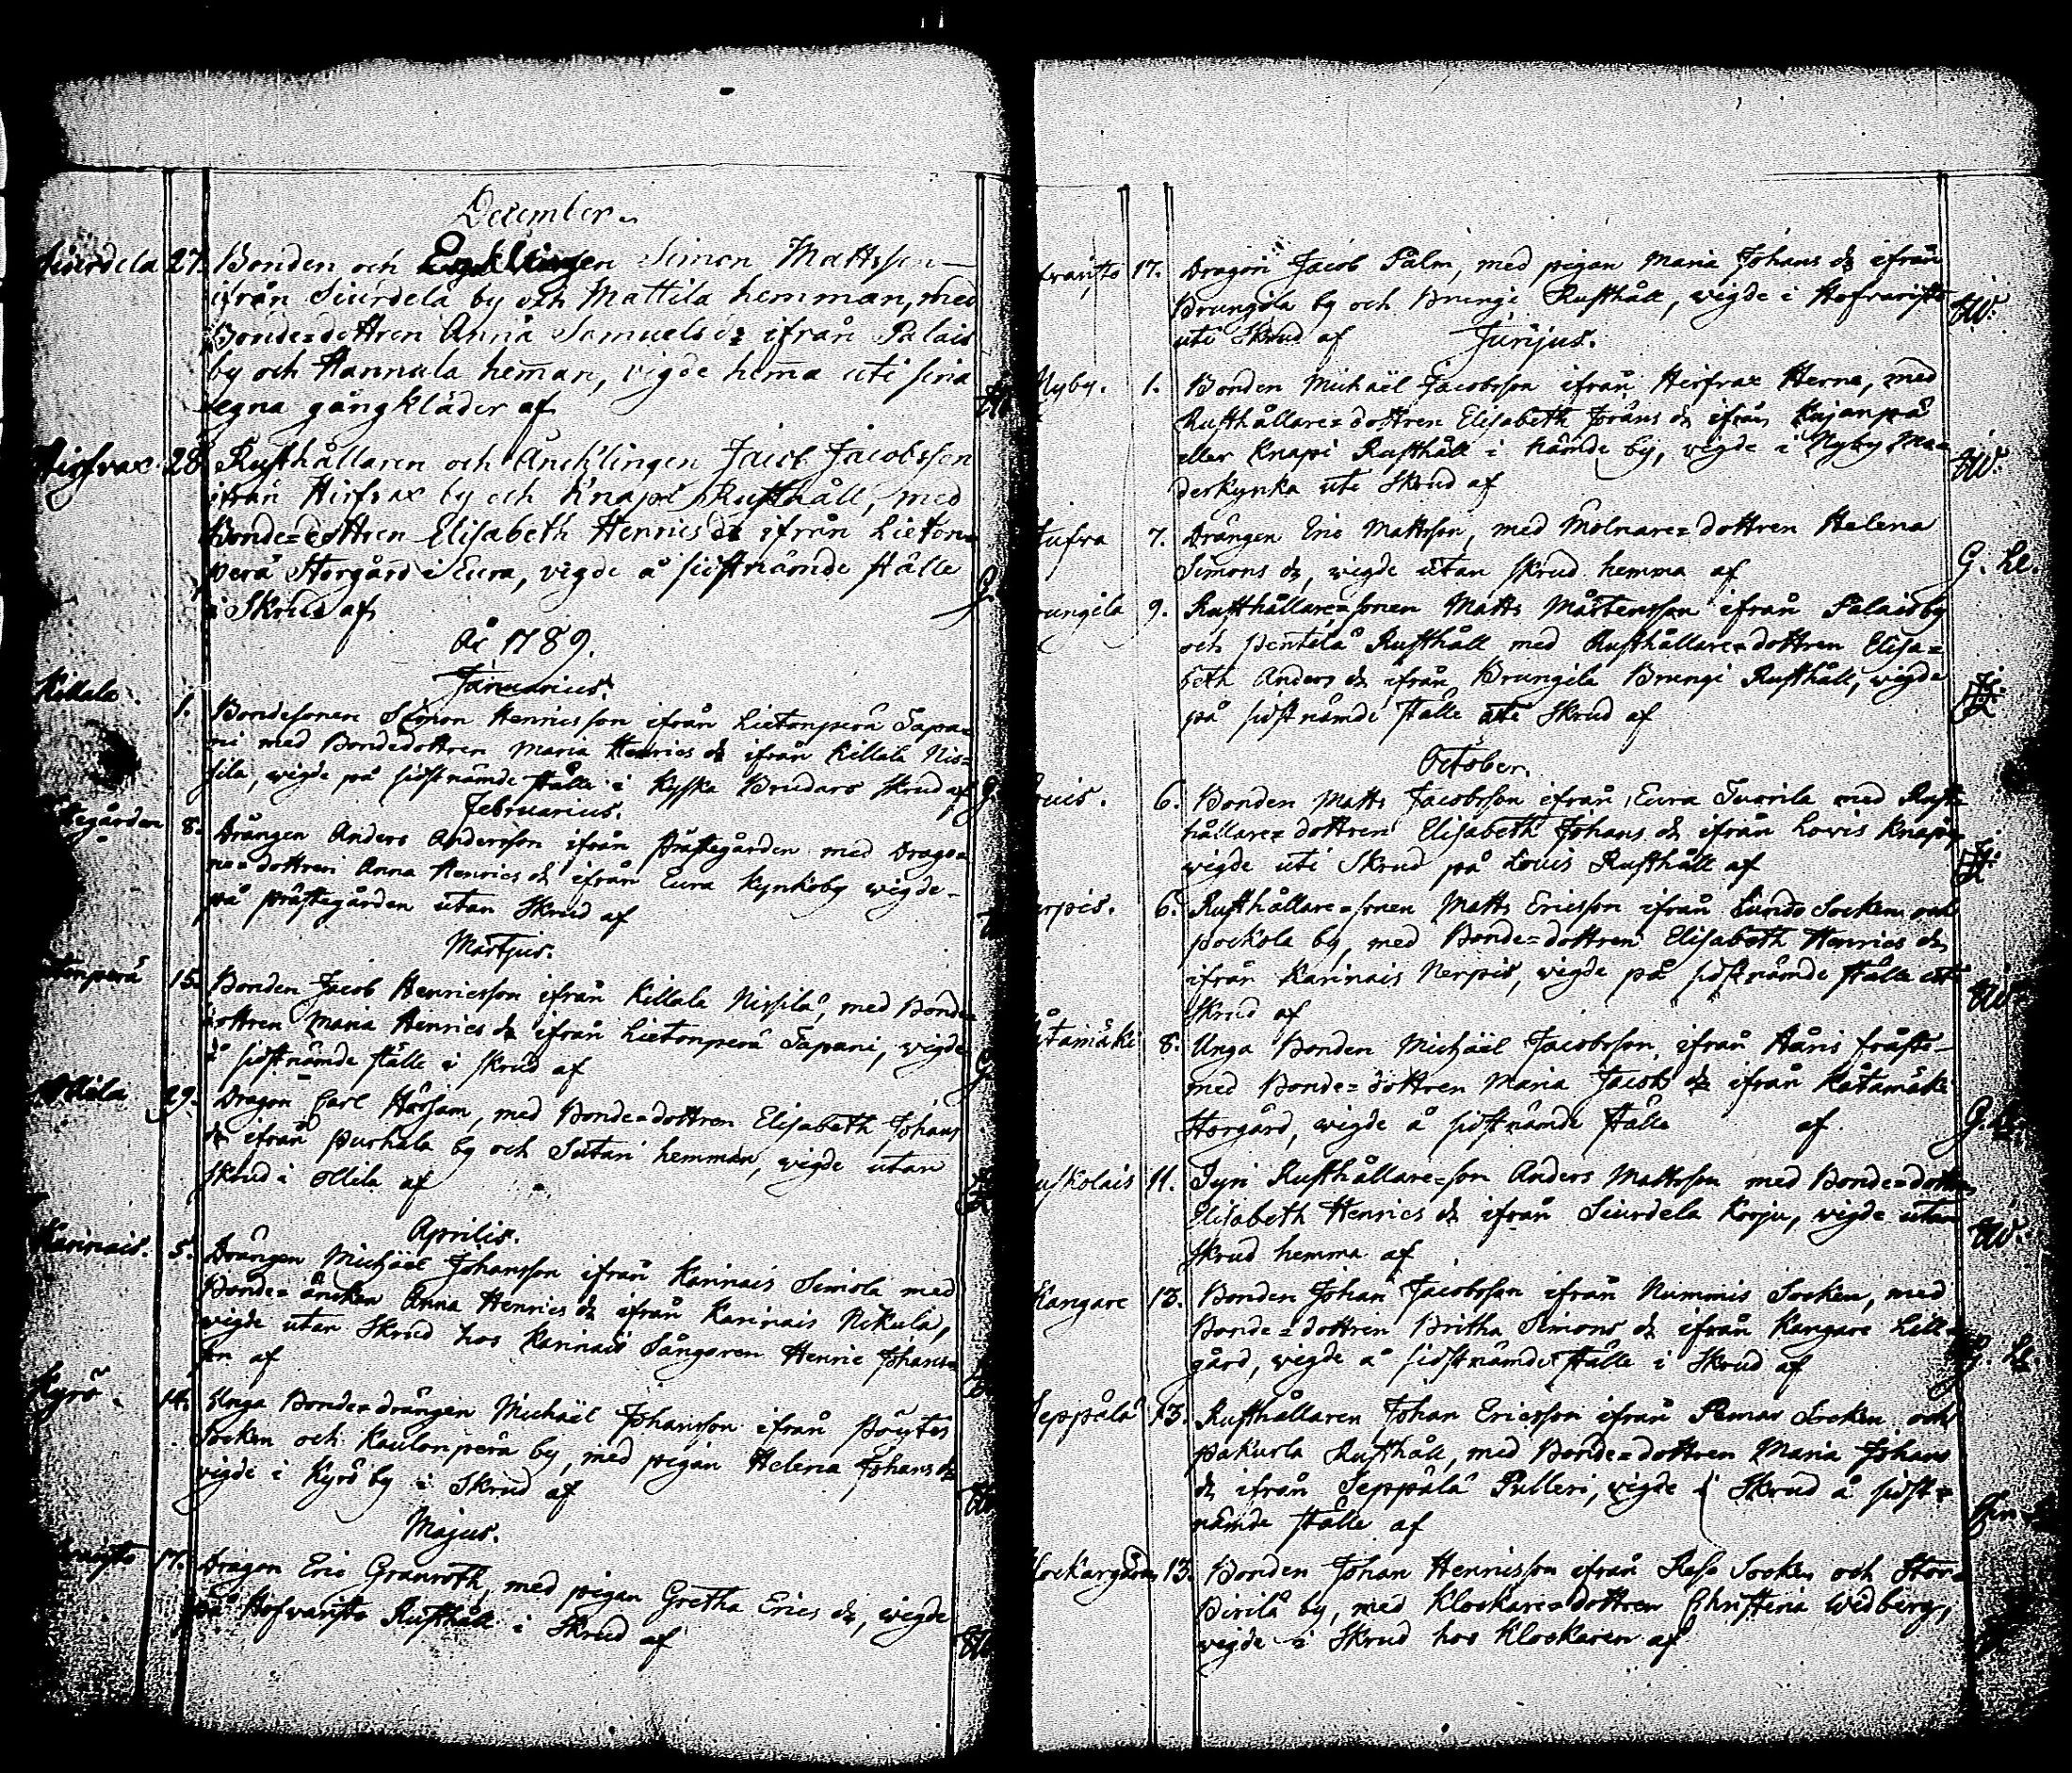 December.
Siurdela 27. Bonden och Enklingen Simon Mattsson
ifrån Siurdela by och Mattila hemman, med
Bonde=dottren Anna Samuels dr ifrån Palais
by och Hannula hemman, vigde hemma uti sina
egna gångkläder af
Hirfvax 28. Rusthållaren och Änklingen Jacob Jacobsson
ifrån Hirfvax by och Knapi Rusthåll, med
Bonde=dottren Elisabeth Henrics dr ifrån Lieton=
perä Storgård i Eura, vigde å sidstnämde ställe
i Skrud af
År 1789.
Januarius.
Killala. 1. Bondesonen Simon Henricsson ifrån Lietonperä Tapa=
ni med Bondedottren Maria Henrics dr ifrån Killala Nis=
sila, wigde på sidstnämde ställe i Kyska Brudars Skrud af
Februarius.
8. Drängen Anders Andersson ifrån Prästegården med Drago=
ne=dottren Anna Henrics dr ifrån Eura Kynköby wigde
på prästegården utan Skrud af
Martjus.
15. Bonden Jacob Henricsson ifrån Killala Nissilä, med Bonde=
dottren Maria Henrics dr ifrån Lietonperä Tapani, vigde
å sidstnämde ställe i skrud af
Ollila 29. Dragon Carl Hörsam, med Bonde=dottren Elisabeth Johans
dr ifrån Purhala by och Sutari hemman, vigde utan
skrud i Ollila af
Aprilis.
Karinais. 5. Drängen Michäel Johansson ifrån Karinais Simola med
Bonde=änckan Anna Henrics dr ifrån Karinais Nikula,
vigde utan Skrud hos Karinais Sångaren Henric Johans=
son af
Kyrö. 14. Unga Bonde=drängen Michäel Johansson ifrån Pöytis
Socken och Kaulanperä by, med pigan Helena Johans dr
vigde i Kyrö by i Skrud af
Majus.
17. Dragon Eric Granroth, med pigan Gretha Erics dr, wigde
på Hofvaristo Rusthåll i Skrud af
17. Dragon Jacob Palm, med pigan Maria Johans dr ifrån
Brungila by och Brungi Rusthåll, wigde i Hofvaristo
uti Skrud af
Junjus.
Nyby. 1. Bonden Michaël Jacobsson ifrån Hirfvax Herna, med
Rusthållare=dottren Elisabeth Jöräns dr ifrån Kajanpä
eller Knapi Rusthåll i nämde by, wigde i Nyby Ma=
derkynka uti Skrud af
7. Drängen Eric Mattsson, med Molnare=dottren Helena
Simons dr, wigde utan skrud hemma af
G. Le.
9. Rusthållare=sonen Matts Mårtensson ifrån Palaisby
och Penttilä Rusthåll med Rusthållare=dottren Elisa=
beth Anders dr ifrån Brungila Brungi Rusthåll, wigde
på sidstnämde ställe uti Skrud af
October.
6. Bonden Matts Jacobsson ifrån Eura Tuorila med Rust=
hållare=dottren Elisabeth Johans dr ifrån Lovis Knapi,
wigde uti Skrud på Louis Rusthåll af
6. Rusthållare=sonen Matts Ericsson ifrån Lundo Socken och
Pockola by, med Bonde=dottren Elisabeth Henrics dr
ifrån Karinais Nerpis, wigde på sidstnämde ställe uti
Skrud af
8. Unga Bonden Michäel Jacobsson, ifrån Håris
med Bonde=dottren Maria Jacobs dr ifrån Kåtamäki
Storgård, wigde å sidstnämde ställe af
11. Jyri Rusthållare=son Anders Mattsson med Bonde=dottren
Elisabeth Henrics dr ifrån Siurdela Korju, wigde utan
Skrud hemma af
Kangare 13. Bonden Johan Jacobsson ifrån Nummis Socken, med
Bonde=dottren Britha Simons dr ifrån Kangare Lill=
gård, wigde å sidstnämde ställe i Skrud af
Seppälä 13. Rusthållaren Johan Ericsson ifrån Pemar Socken och
Pakurla Rusthåll, med Bonde=dottren Maria Johans
dr ifrån Seppälä Pulleri, wigde i Skrud å sidst=
nämde ställe af
13. Bonden Johan Henricsson ifrån Reso Socken och Stor=
Pirilä by, med Klockare=dottren Christina Widberg,
wigde i Skrud hos Klockaren af